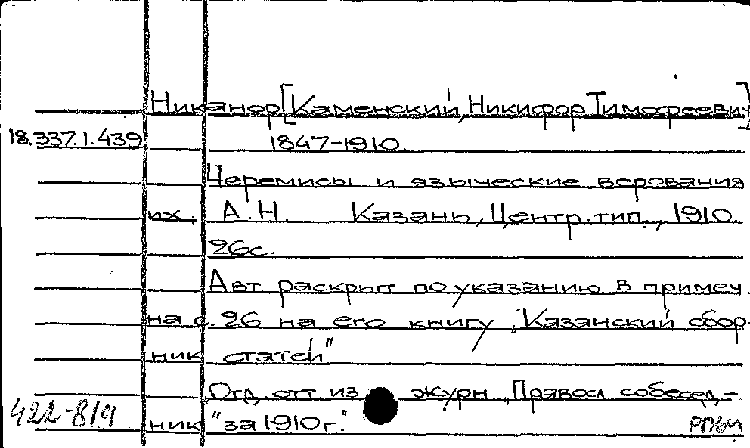 Никанор [Каменский, Никифор Тимофеевич]
18.337.1.439 1847-1910.
Черемисы и языческие верования
их. А.Н. Казань, Центр. тип., 1910.
26с.
Авт раскрыт по указанию в примеч.
на с. 26 на его книгу „Казанский сбор-
ник статей"
Отд. отт из журн „Правосл собесед-
ник "за 1910г."
422-819